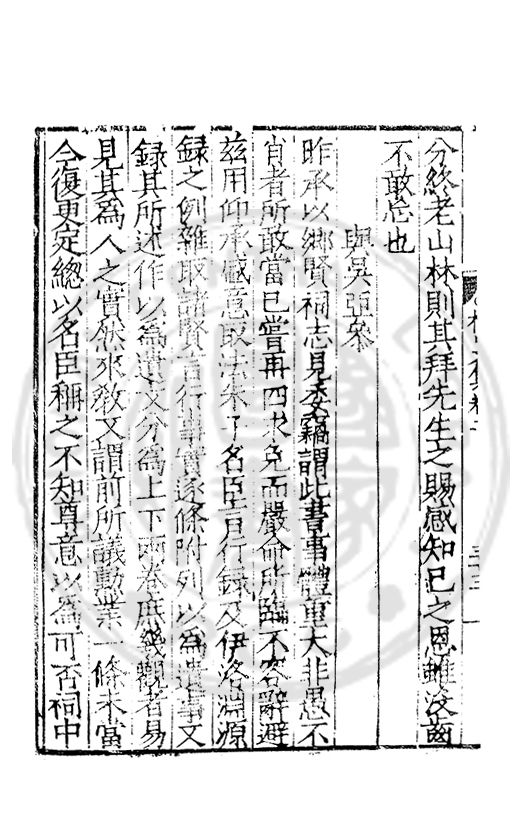 分終老山林則其拜先生之賜感知已之恩雖没齒
不敢忘也
與吳亞叅
昨承以鄉賢祠志見委竊謂此書事體重大非愚不
肖者所敢當已嘗再四求免而嚴命所臨不容辭避
兹用仰承盛意取法朱子名臣言行録及伊洛淵源
録之例雜取諸賢言行事實逐條附列以為遺事又
録其所述作以為遺文分為上下兩卷庶幾觀者易
見其為人之實然來敎又謂前所議勳業一條未當
今復更定總以名臣稱之不知尊意以為可否祠中